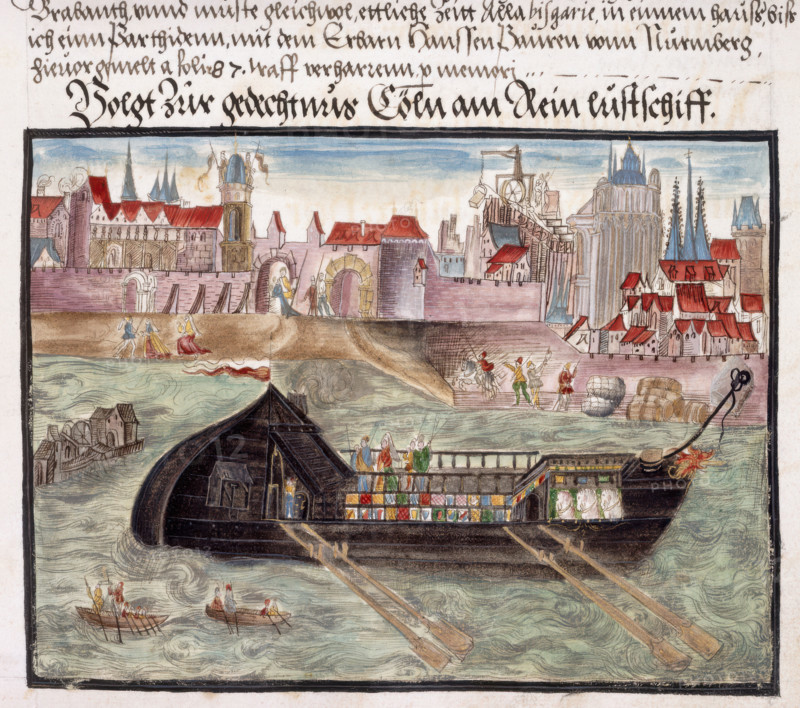 Brabanth, vnnd müste gleichwol, ettliche Zeitt Alla bisgarie, in einnem hauß, bis
ich einn Parthidenn, mit dem Erbarn Hanssen Bauren vonn Nürmberg,
hieuor gemelt a folirg 7. traff verharrenn, p memorj
Volgt Zür gedechtnus Cöln am Rein lustschiff.